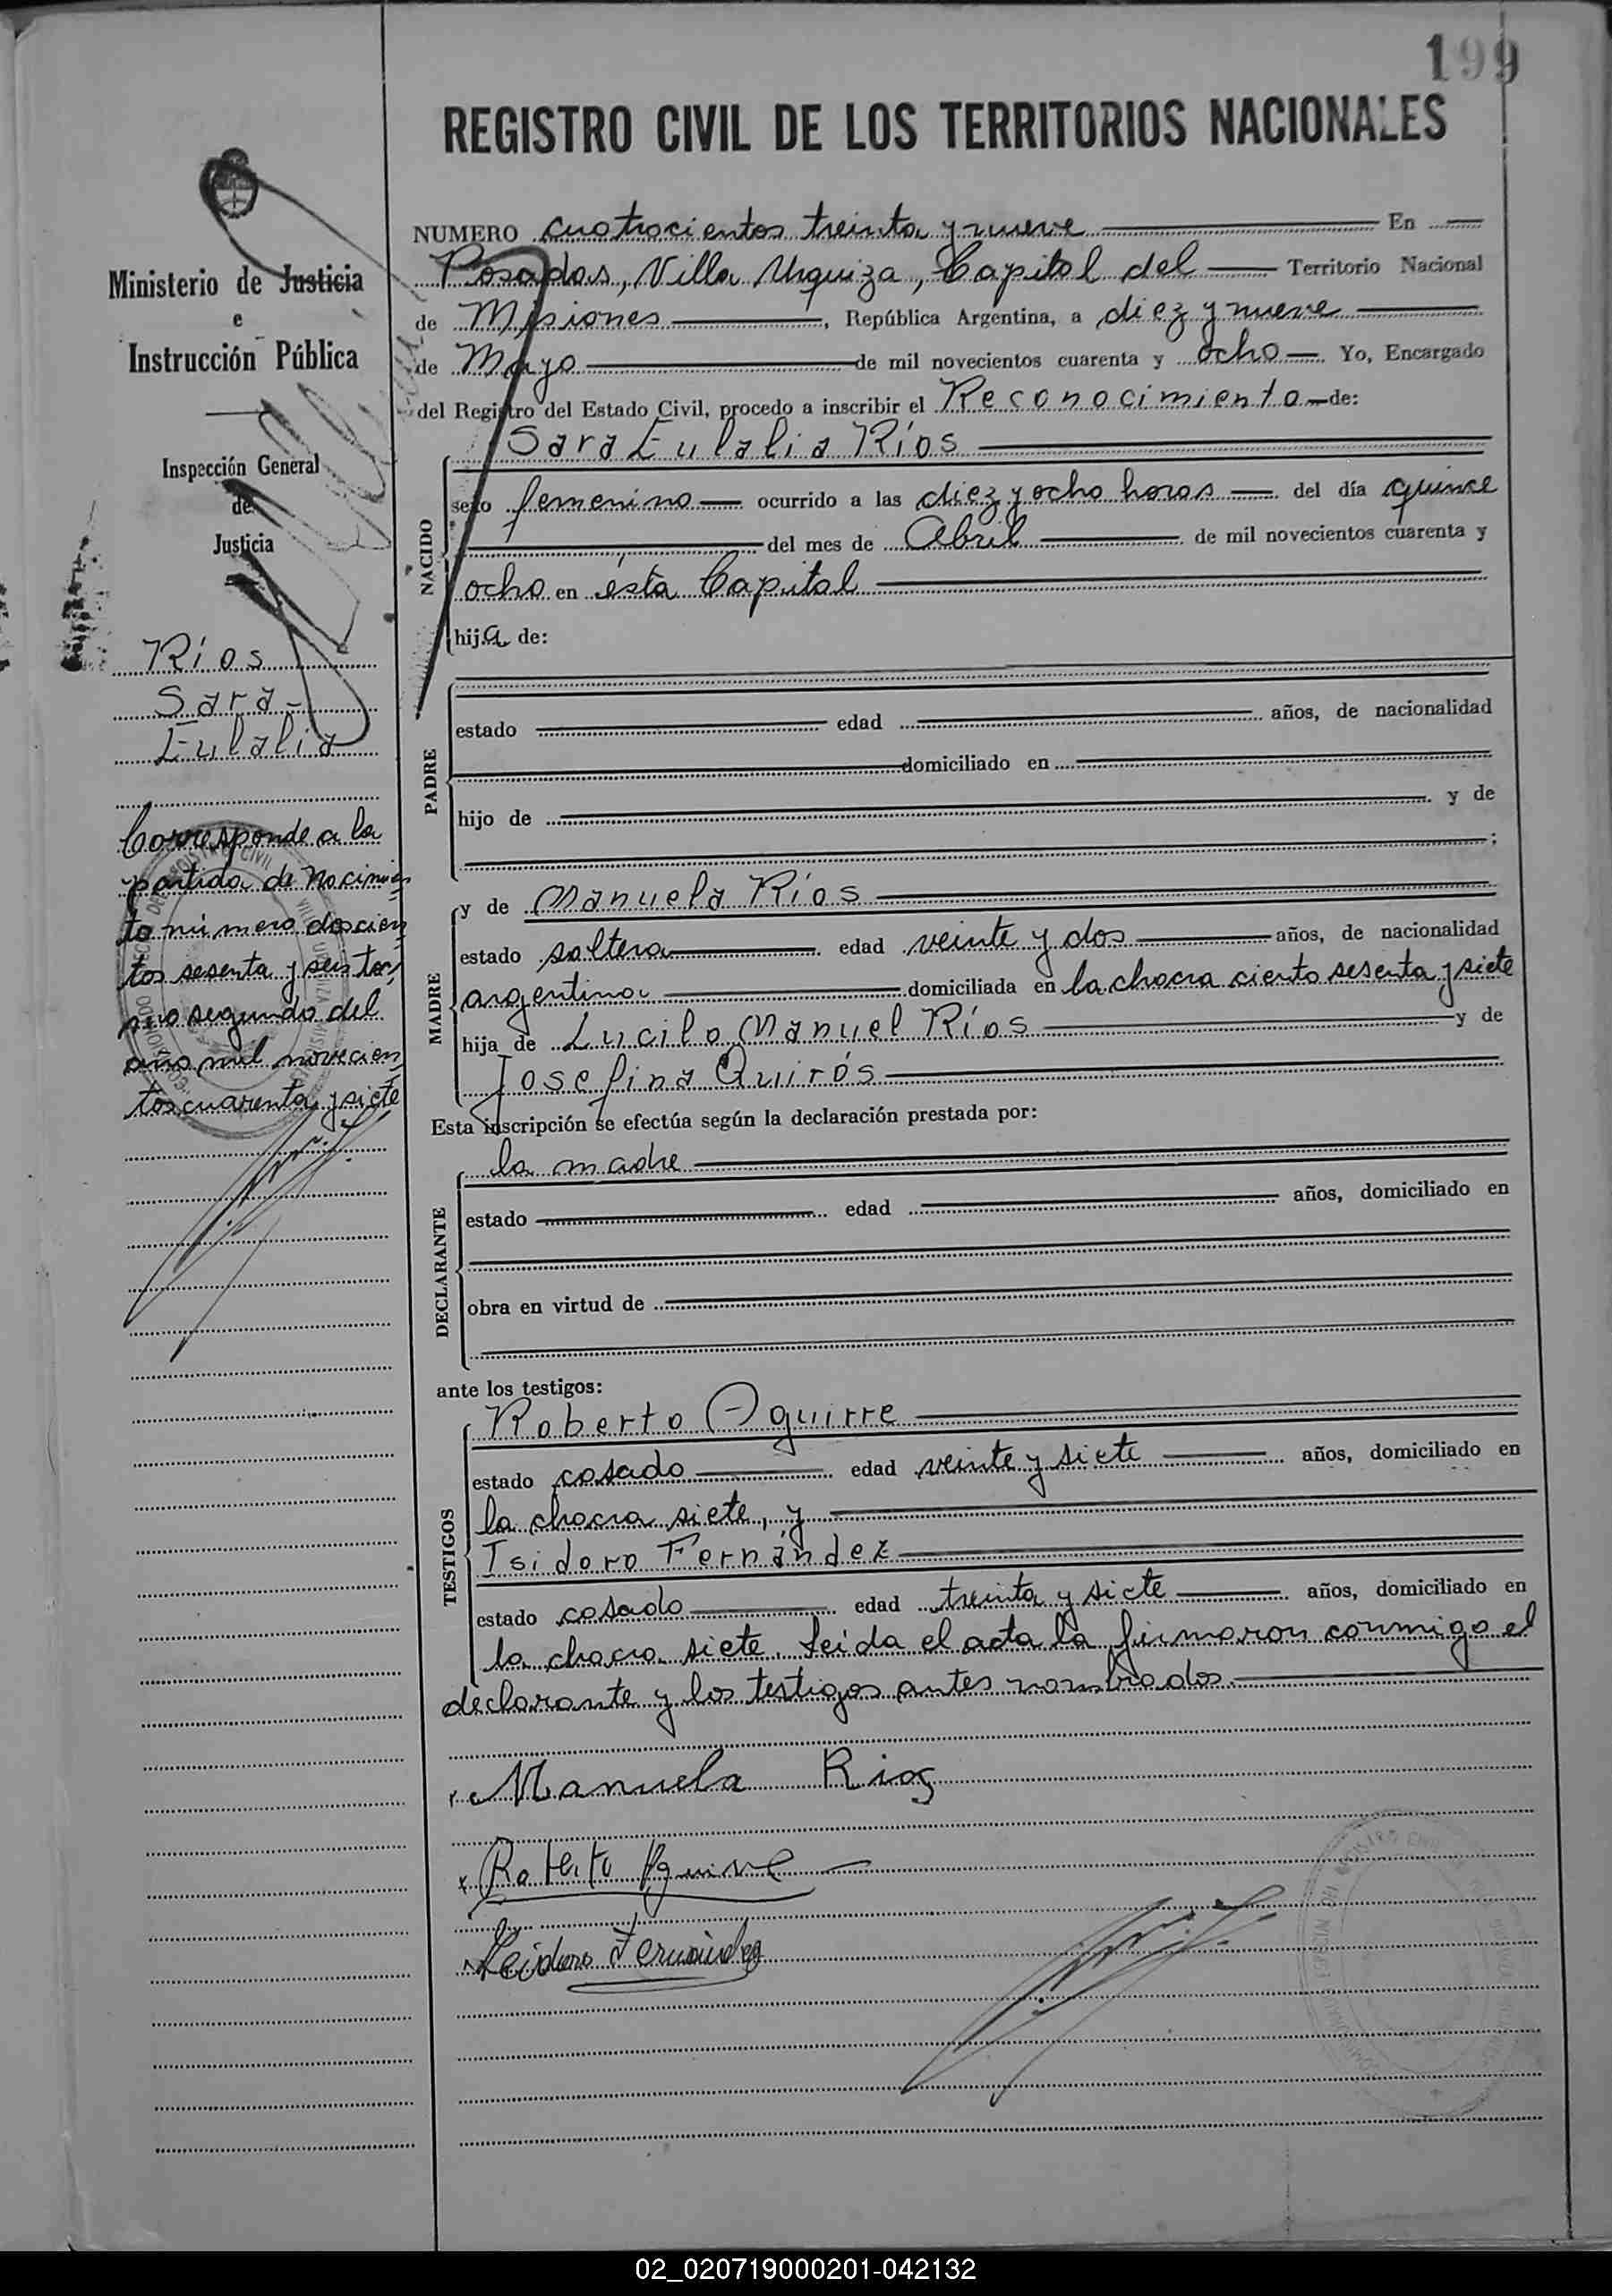 199
REGISTRO CIVIL DE LOS TERRITORIOS NACIONALES
Ministerio de Justicia
e
Instrucción Pública
Inspección General
de
Justicia
Ríos
Sara
Eulalia
Corresponde a la
partida de nacimien
to número doscien
tos sesenta y seis to
mo segundo del
año mil novecien
tos cuarenta y siete
NUMERO cuatrocientos treinta y nueve En
Posadas, Villa Urquiza, Capital del Territorio Nacional
de Misiones, República Argentina, a diez y nueve
de Mayo de mil novecientos cuarenta y ocho. Yo, Encargado
del Registro del Estado Civil, procedo a inscribir el Reconocimiento de:
NACIDO
Sara Eulalia Ríos
sexo femenino ocurrido a las diez y ocho horas del día quince
del mes de Abril de mil novecientos cuarenta y
ocho en ésta Capital
hija de:
PADRE
estado edad años, de nacionalidad
domiciliado en
hijo de y de
;
MADRE
y de Manuela Ríos
estado soltera edad veinte y dos años, de nacionalidad
argentina domiciliada en la chacra ciento sesenta y siete
hija de Lucilo Manuel Ríos y de
Josefina Quirós
Esta inscripción se efectúa según la declaración prestada por:
DECLARANTE
la madre
estado edad años, domiciliado en
obra en virtud de
ante los testigos:
TESTIGOS
Roberto Aguirre
estado casado edad veinte y siete años, domiciliado en
la chacra siete, y
Isidoro Fernández
estado casado edad treinta y siete años, domiciliado en
la chacra siete. Leída el acta la firmaron conmigo el
declarante y los testigos antes nombrados.
Manuela Rios
Roberto Aguirre
Isidoro Fernández
02_020719000201-042132